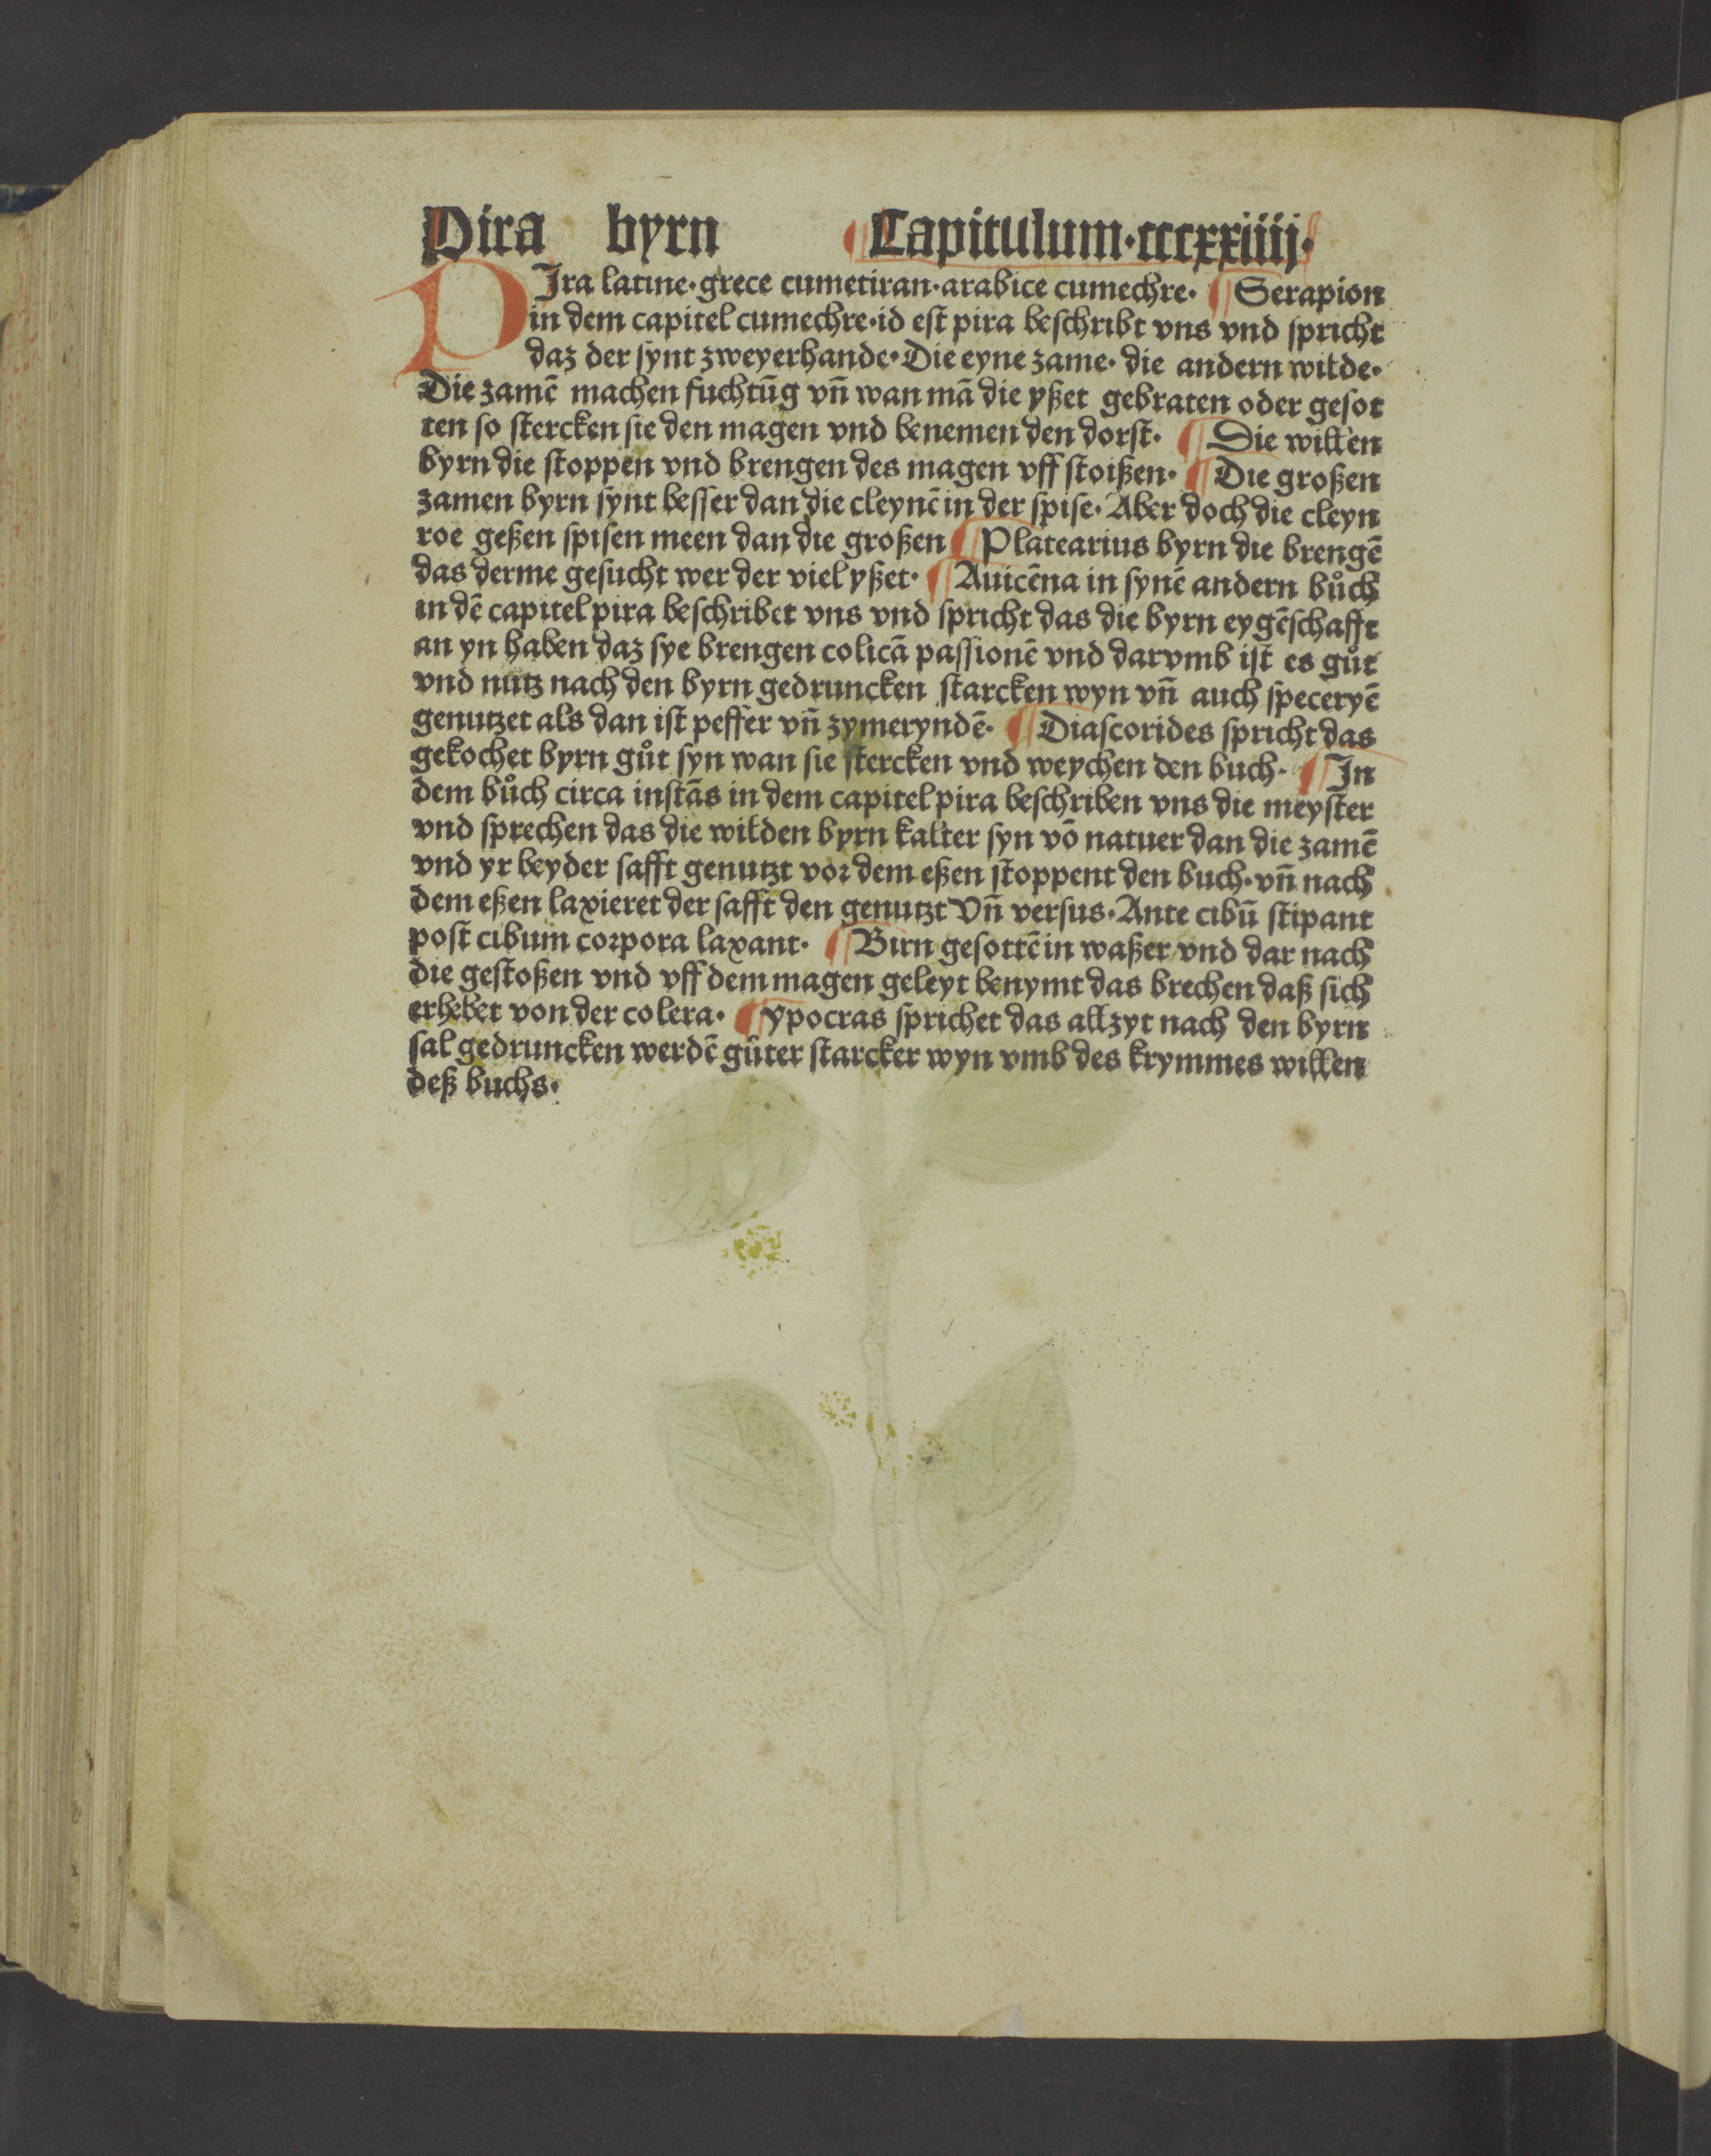 Pira byrn ¶ Capitulum·cccxxiiij·
PJra latine·grece cumetiran·arabice cumechre· ¶ Serapion
in dem capitel cumechre·id eſt pira beſchribt vns vnd ſpricht
daz der ſynt zweyerhande·Die eyne zame· die andern wilde·
Die zamē machen fuchtūg vn̄ wan mā die yßet gebraten oder geſot
ten ſo ſtercken ſie den magen vnd benemen den dorſt· ¶ Die willen
byrn die ſtoppen vnd brengen des magen vff ſtoißen· ¶ Die großen
zamen byrn ſynt beſſer dan die cleynē in der ſpiſe·Aber doch die cleyn
roe geßen ſpiſen meen dan die großen ¶ Platearius byrn die brengē
das derme geſucht wer der viel yßet· ¶ Auicēna in ſynē andern bůch
in dē capitel pira beſchribet vns vnd ſpricht das die byrn eygēſchafft
an yn haben daz ſye brengen colicā paſſionē vnd darvmb iſt es gůt
vnd nutz nach den byrn gedruncken ſtarcken wyn vn̄ auch ſpeceryē
genutzet als dan iſt peffer vn̄ zymeryndē· ¶ Diaſcorides ſpricht das
gekochet byrn gůt ſyn wan ſie ſtercken vnd weychen den buch· ¶ Jn
dem bůch circa inſtās in dem capitel pira beſchriben vns die meyſter
vnd ſprechen das die wilden byrn kalter ſyn vō natuer dan die zamē
vnd yr beyder ſafft genutzt vor dem eßen ſtoppent den buch·vn̄ nach
dem eßen laxieret der ſafft den genutzt Vn̄ verſus·Ante cibū ſtipant
poſt cibum corpora laxant· ¶ Birn geſottē in waßer vnd dar nach
die geſtoßen vnd vff dem magen geleyt benymt das brechen daß ſich
erhebet von der colera· ¶ ypocras ſprichet das allzyt nach den byrn
ſal gedruncken werdē gůter ſtarcker wyn vmb des krymmes willen
deß buchs·